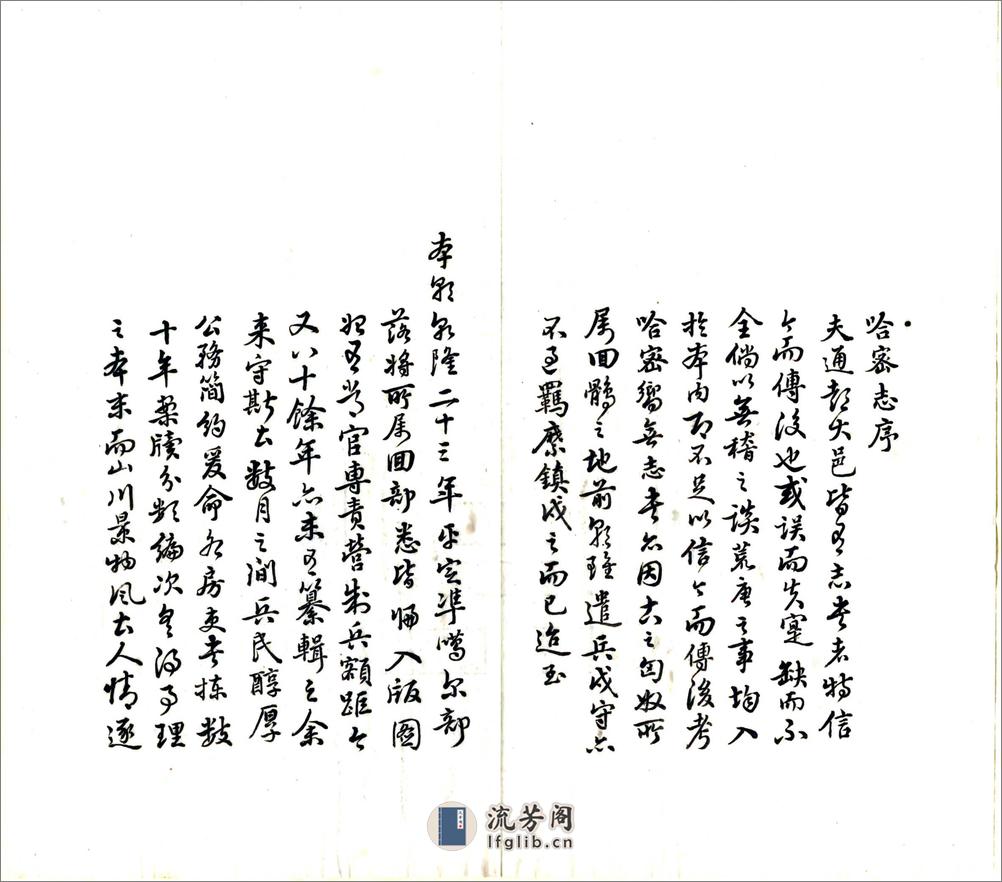 哈密志序
夫通都大邑皆有志書者特信
今而傳後也或誤而失寔缺而不
全倘以無稽之談荒唐之事均入
於本内即不足以信今而傳後考
哈密嚮無志書亦因古之匈奴所
属回鶻之地前朝雖遣兵戍守亦
不過羈縻鎮戍之而已迨至
本朝乾隆二十三年平定準噶尔部
落將所属回部悉皆歸入版圖
始有常官專責營制兵額距今
又八十餘年亦未有纂輯之余
来守斯土数月之间兵民醇厚
公務简約爰命各房吏書揀数
十年案牘分類编次冬得事理
之本末而山川景物风土人情逐
流芳阁
lfglib.cn